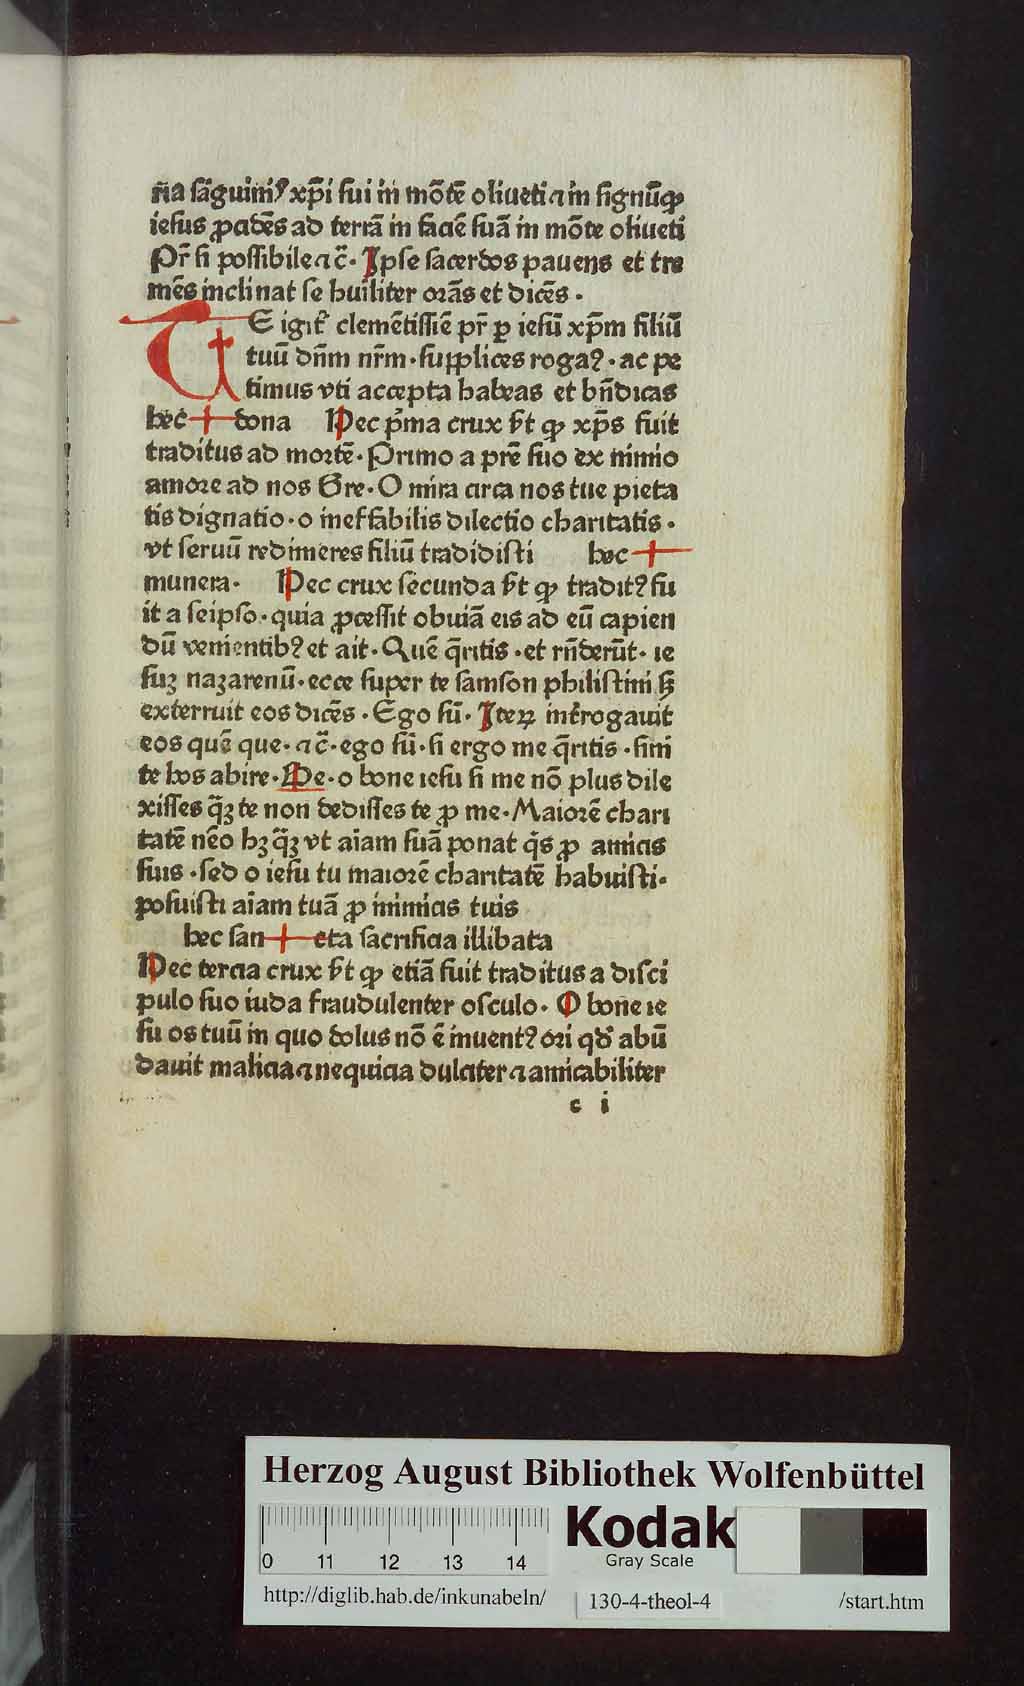 r̃ia sãguini⁹ xp̃i sui in mõte oliueti ⁊ in signũ ꝙ
iesus ꝓcidẽs ad terrã in faciẽ suã in mõte oliueti
Pr̃ si possibile ⁊c̃. Ipse sacerdos pauens et tre
mẽs inclinat se huiliter orãs et dicẽs.
TE igit̉ clemẽtissĩe pr̃ ꝑ iesũ xp̃m filiũ
tuũ dñm nr̃m. supplices roga?. ac pe
timus vti accepta habeas et bñdicas
hec̃ + dona Hec p̃ma crux s̃t ꝙ xp̃s fuit
traditus ad mortẽ. Primo a prẽ suo ex nimio
amore ad nos Gre. O mira circa nos tue pieta
tis dignatio. o ineffabilis dilectio charitatis.
vt seruũ redimeres filiũ tradidisti hec +
munera. Hec crux secunda s̃t ꝙ tradit? fu
it a seipso. quia ꝓcessit obuiã eis ad eũ capien
dũ venientib? et ait. Quẽ q̃ritis. et rñderũt. ie
suꝫ nazarenũ. ecce super te samson philistini sꝫ
exterruit eos dicẽs. Ego sũ. Iteꝝ int̃rogauit
eos quẽ que. ⁊c̃. ego sũ. si ergo me q̃ritis. sini
te hos abire. He. o bone iesu si me nõ plus dile
xisses q̃ꝫ te non dedisses te ꝓ me. Maiorẽ chari
tatẽ nẽo hꝫ q̃ꝫ vt aĩam suã ponat q̉s ꝓ amicis
suis. sed o iesu tu maiorẽ charitatẽ habuisti.
posuisti aĩam tuã ꝓ inimicis tuis
hec san + cta sacrificia illibata
Hec tercia crux s̃t ꝙ etiã fuit traditus a disci
pulo suo iuda fraudulenter osculo. O bone ie
su os tuũ in quo dolus nõ ẽ inuent? ori qd̉ abũ
dauit malicia ⁊ nequicia dulciter ⁊ amicabiliter
c i
Herzog August Bibliothek Wolfenbüttel
0 11 12 13 14
Kodak
Gray Scale
http://diglib.hab.de/inkunabeln/ 130-4-theol-4 /start.htm